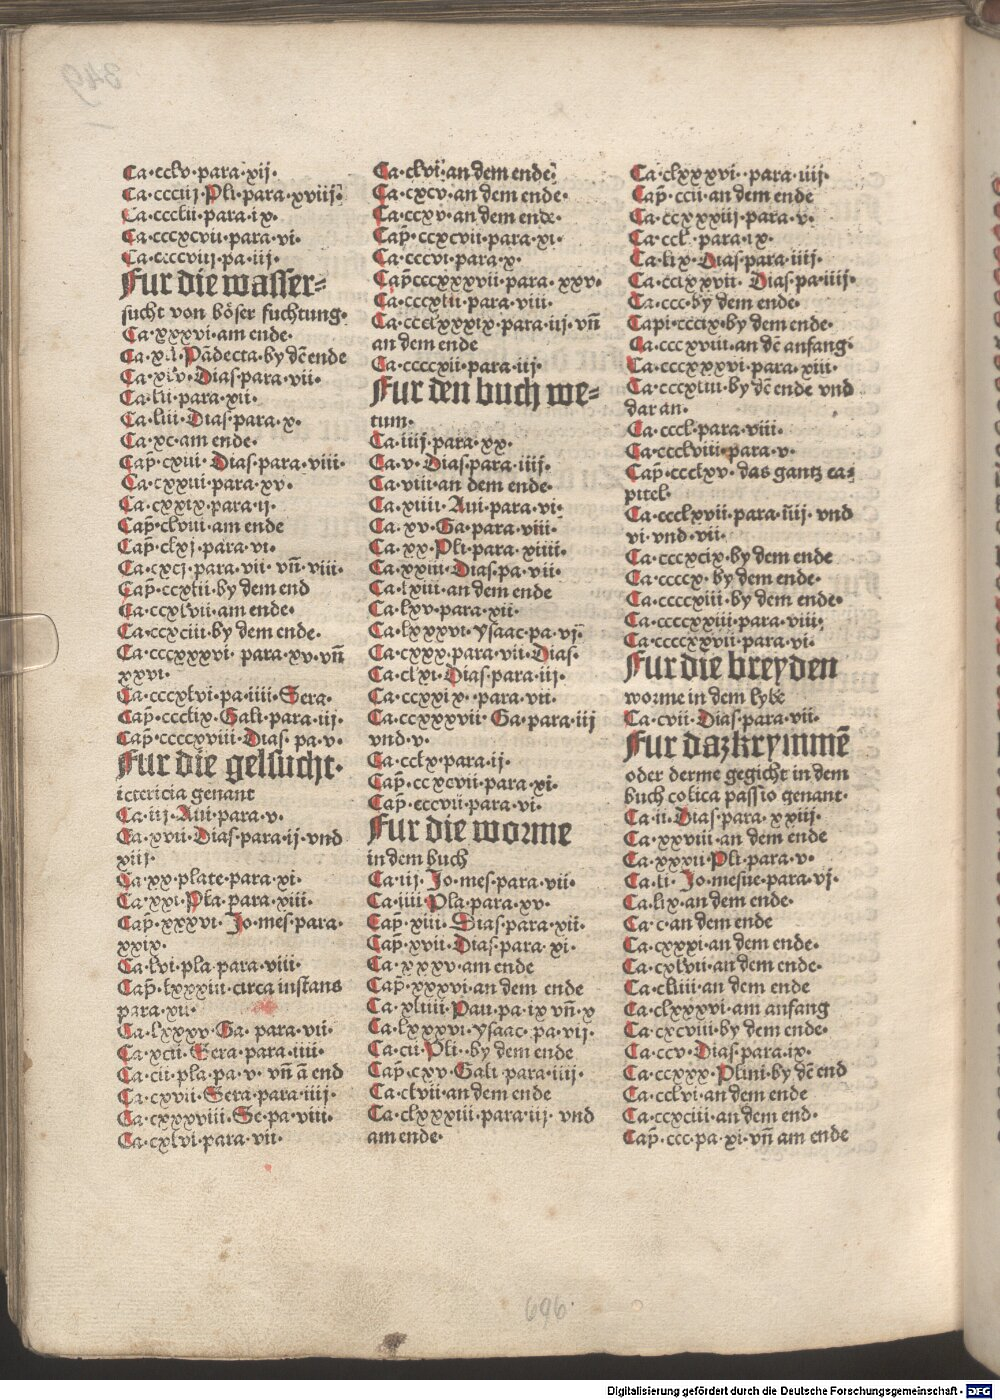 Ca·cclv·para·xij·
Ca·cccuj·Pli·para·xviij·
Ca·ccclii·para·ix·
Ca·cccxcvii·para·vi·
Ca·ccccviij·pa·iij·
Fur die wasser=
sucht von böser fuchtung·
Ca·xxxvi·am ende·
Pādecta·by dē ende
Ca·xlv·Dias·para·vii·
Ca·lii·para·xii·
Ca·liii·Dias·para·x·
Ca·xc·am ende·
Cap̄·cxiii·Dias·para·viii·
Ca·cxxiii·para·xv·
Ca·cxxix·para·ij·
Cap̄·clviii·am ende
Cap̄·clxj·para·vi·
Ca·cxcj·para·vii·vn̄·viii·
Cap̄·ccxlii·by dem end
Ca·ccxlvii·am ende·
Ca·ccxciii·by dem ende·
Ca·cccxxxvi·para·xv·vn̄
xxvi·
Ca·cccxlvi·pa·iiii·Sera·
Cap̄·ccclix·Gali·para·iij·
Cap̄·ccccxviii·Dias·pa·v·
Fur die gelsucht·
ictericia genant
Ca·iij·Aui·para·v·
Ca·xvii·Dias·para·ij·vnd
xiij·
Ca·xx·plate·para·xi·
Ca·xxi·Pla·para·xiii·
Cap̄·xxxvi·Jo·mes·para·
xxix·
Ca·lvi·pla·para·viii·
Cap̄·lxxxiii·circa instans
para·xii·
Ca·lxxxv·Ga·para·vii·
Ca·xcii·Sera·para·iiii·
Ca·cii·pla·pa·v·vn̄ ā end
Ca·cxvii·Sera·para·iiij·
Ca·cxxxviii·Se·pa·viii·
Ca·cxlvi·para·vii·
Ca·clvi·an dem ende·
Ca·cxcv·an dem ende·
Ca·ccxv·an dem ende·
Cap̄·ccxcvii·para·xi·
Ca·cccvi·para·x·
Cap̄·cccxxxvii·para·xxv·
Ca·cccxlii·para·viii·
Ca·ccclxxxix·para·iij·vn̄
an dem ende
Ca·ccccxii·para·iij·
Fur den buch we=
tum·
Ca·iiij·para·xx·
Ca·v·Dias·para·iiij·
Ca·viii·an dem ende·
Ca·xiiii·Aui·para·vi·
Ca·xv·Ga·para·viii·
Ca·xx·Pli·para·xiiii·
Ca·xxiii·Dias·pa·vii·
Ca·lxiii·an dem ende
Ca·lxv·para·xii·
Ca·lxxxvi·ysaac·pa·vj·
Ca·cxxx·para·vii·Dias·
Ca·clxi·Dias·para·iij·
Ca·ccxxix·para·vii·
Ca·ccxxxvii·Ga·para·iij
vnd·v·
Ca·cclx·para·ij·
Cap̄·ccxcvii·para·xi·
Cap̄·cccvii·para·vi·
Fur die worme
in dem buch
Ca·iij·Jo·mes·para·vii·
Ca·iiii·Pla·para·xv·
Cap̄·xiii·Dias·para·xii·
Cap̄·xvii·Dias·para·xi·
Ca·xxxv·am ende
Cap̄·xxxvi·an dem ende
Ca·xliiii·Pau·pa·ix vn̄·x
Ca·lxxxvi·ysaac·pa·vij·
Ca·cii·Pli·by dem ende
Cap̄·cxv·Gali·para·iiij·
Ca·clvii·an dem ende
Ca·clxxxiii·para·iij·vnd
am ende·
Ca·clxxxvi·para·iiij·
Cap̄·ccii·an dem ende
Ca·ccxxxiij·para·v·
Ca·ccl·para·ix·
Ca·lix·Dias·para·iiij·
Ca·cclxxvii·Dias·pa·iiij·
Ca·ccc·by dem ende·
Capi·cccix·by dem ende·
Ca·cccxviii·an dē anfang·
Ca·cccxxxvi·para·xiii·
Ca·cccxliii·by dē ende vnd
dar an·
Ca·cccl·para·viii·
Ca·ccclviii·para·v·
Cap̄·ccclxv·das gantz ca=
pitel·
Ca·ccclxvii·para·iiij·vnd
vi·vnd·vii·
Ca·cccxcix·by dem ende
Ca·ccccx·by dem ende·
Ca·ccccxiii·by dem ende·
Ca·ccccxxiii·para·viii·
Ca·ccccxxvii·para·vi·
Fur die breyden
worme in dem lybe
Ca·cvii·Dias·para·vii·
Fur daz krymmē
oder derme gegicht in dem
buch colica passio genant·
Ca·ii·Dias·para·xxiij·
Ca·xxviii·an dem ende
Ca·xxxii·Pli·para·v·
Ca·li·Jo·mesue·para·vj·
Ca·lix·an dem ende·
Ca·c·an dem ende
Ca·cxxxi·an dem ende·
Ca·cxlvii·an dem ende·
Ca·cliii·an dem ende
Ca·clxxxvi·am anfang
Ca·cxcviii·by dem ende·
Ca·ccv·Dias·para·ix·
Ca·ccxxx·Plini·by dē end
Ca·cclvi·an dem ende
Ca·ccxciii·an dem end·
Cap̄·ccc·pa·xi·vn̄ am ende
696
Digitalisierung gefördert durch die Deutsche Forschungsgemeinschaft - DFG